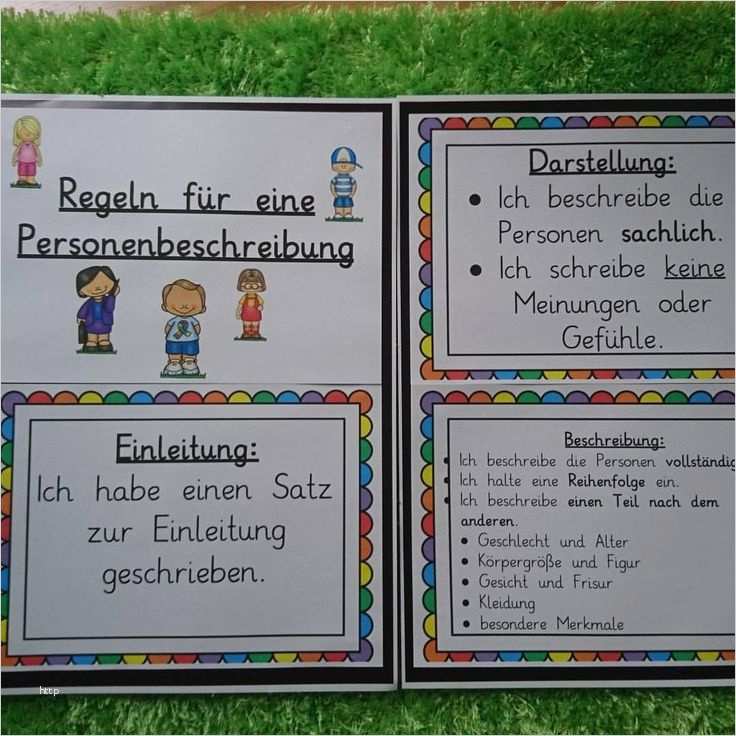 Regeln für eine
Personenbeschreibung
Einleitung:
Ich habe einen Satz
zur Einleitung
geschrieben.
Darstellung:
• Ich beschreibe die
Personen sachlich.
• Ich schreibe keine
Meinungen oder
Gefühle.
Beschreibung:
• Ich beschreibe die Personen vollständig
• Ich halte eine Reihenfolge ein.
• Ich beschreibe einen Teil nach dem
anderen.
• Geschlecht und Alter
• Körpergröße und Figur
• Gesicht und Frisur
• Kleidung
• besondere Merkmale
http